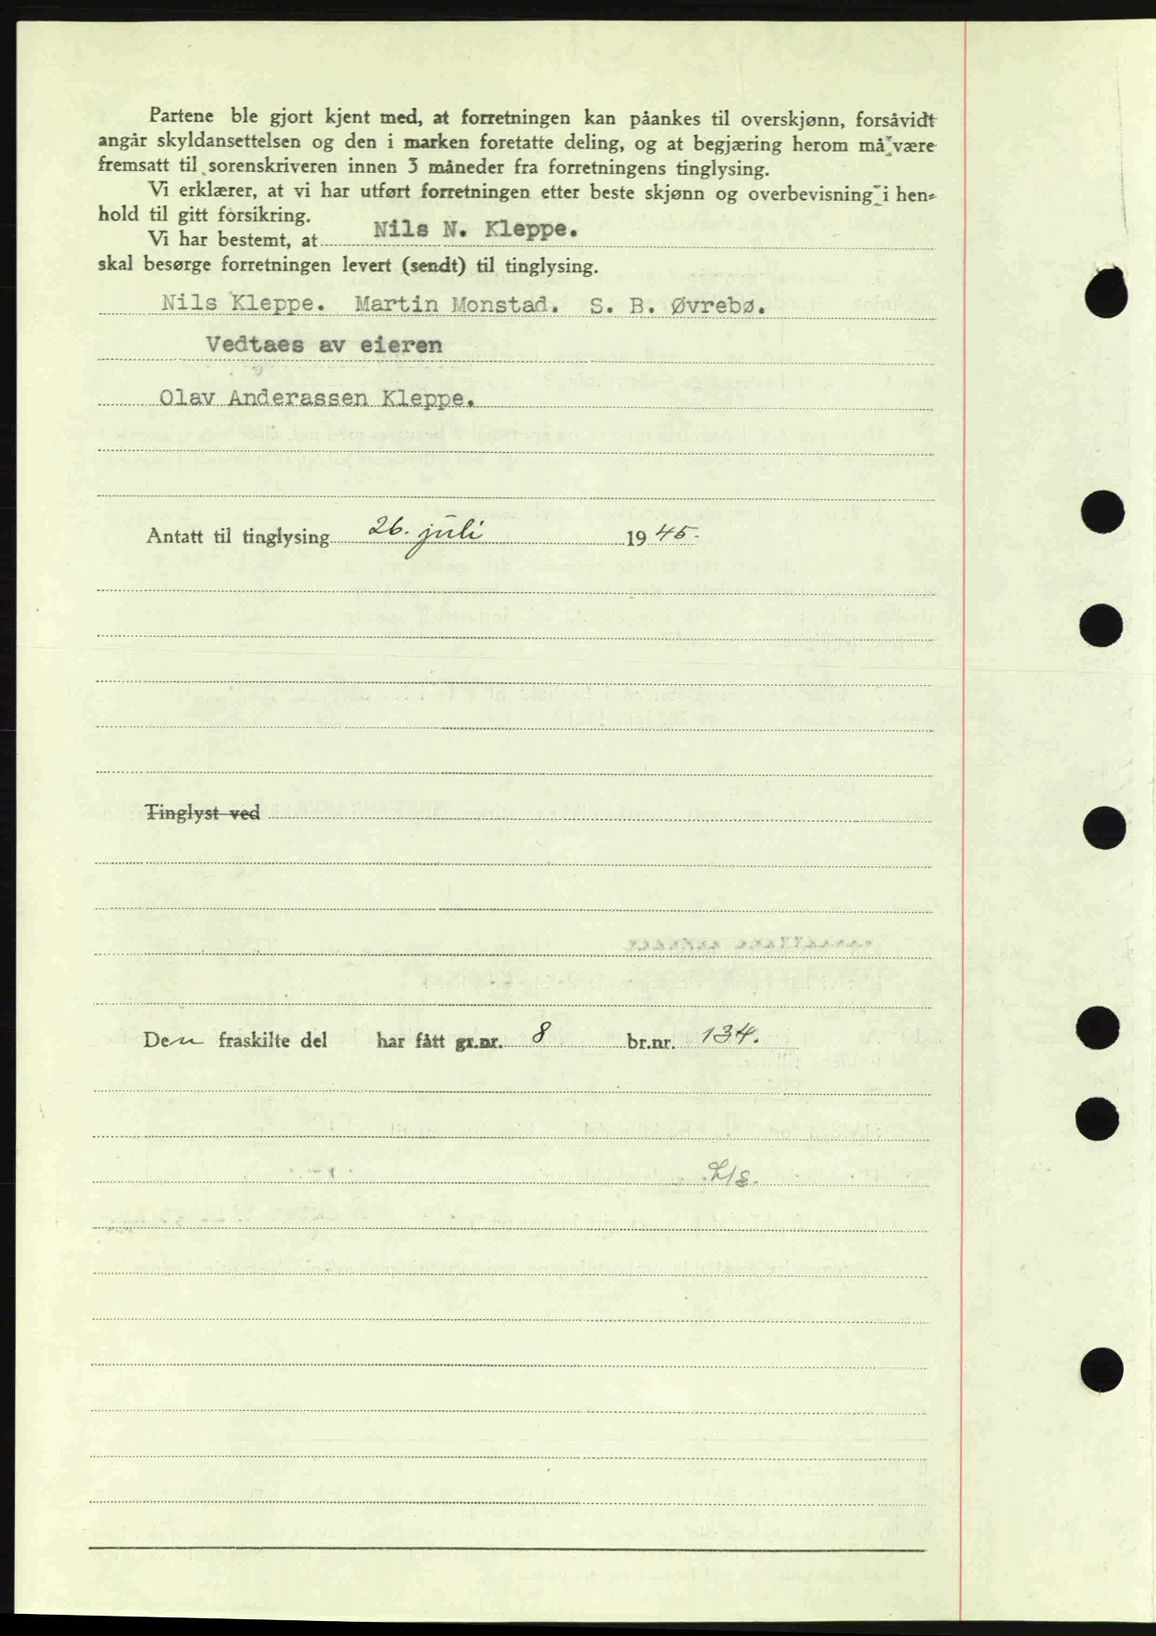 Partene ble gjort kjent med, at forretningen kan påankes til overskjønn, forsåvidt
angår skyldansettelsen og den i marken foretatte deling, og at begjæring herom må være
fremsatt til sorenskriveren innen 3 måneder fra forretningens tinglysing.
Vi erklærer, at vi har utført forretningen etter beste skjønn og overbevisning i hen-
hold til gitt forsikring.
Vi har bestemt, at Nils N. Kleppe.
skal besørge forretningen levert (sendt) til tinglysing.
Nils Kleppe. Martin Monstad. S. B. Øvrebø.
Vedtaes av eieren
Olav Anderassen Kleppe.
Antatt til tinglysing 26. juli 1945.
Tinglyst ved
Den fraskilte del har fått gr.nr. 8 br.nr. 134.